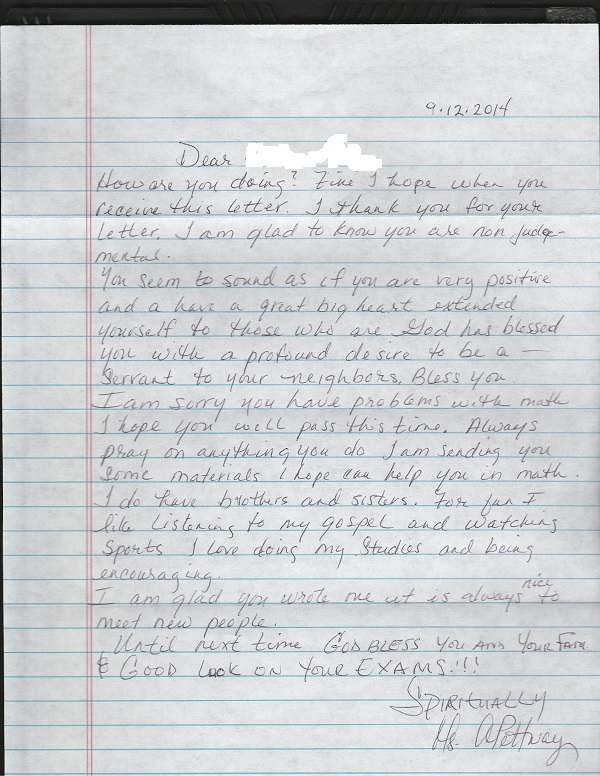 9.12.2014
Dear
How are you doing? Fine I hope when you
receive this letter. I thank you for your
letter. I am glad to know you are non judge-
mental.
You seem to sound as if you are very positive
and a have a great big heart extended
yourself to those who are God has blessed
you with a profound desire to be a —
Servant to your neighbors. Bless you.
I am sorry you have problems with math
I hope you will pass this time. Always
pray on anything you do I am sending you
some materials I hope can help you in math.
I do have brothers and sisters. For fun I
like Listening to my gospel and watching
Sports I Love doing my Studies and being
encouraging.
I am glad you wrote me it is always nice to
meet new people.
Until next time GOD BLESS YOU AND YOUR FAM
& GOOD Look ON YOUR EXAMS!!!
SPIRITUALLY
Ms. A Pettway